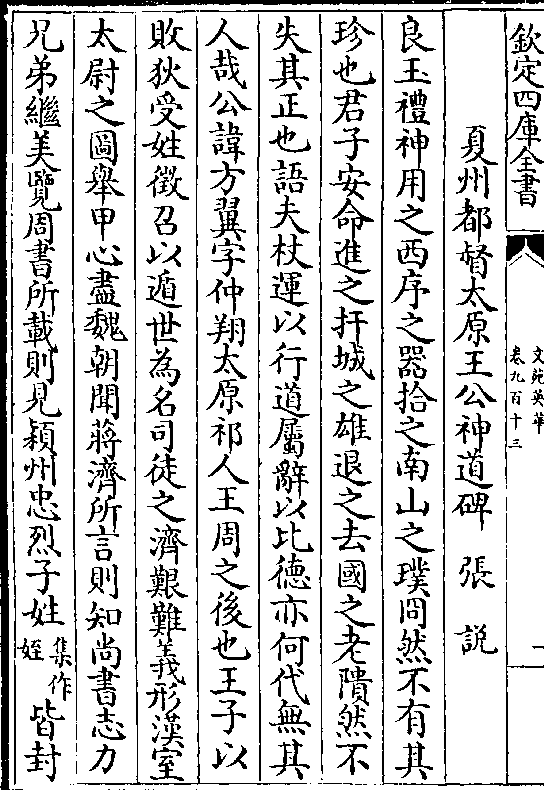 欽定四庫全書
文苑英華
卷九百十三
一
夏州都督太原王公神道碑 張說
良玉禮神用之西序之器拾之南山之璞冏然不有其
珍也君子安命進之扞城之雄退之去國之老隤然不
失其正也語夫杖運以行道屬辭以比德亦何代無其
人哉公諱方翼字仲翔太原祁人王周之後也王子以
敗狄受姓徵召以遁世為名司徒之濟艱難義形漢室
太尉之圖舉甲心盡魏朝聞蔣濟所言則知尚書志力
兄弟繼美覽周書所載則見潁州忠烈子姓集作姪皆封